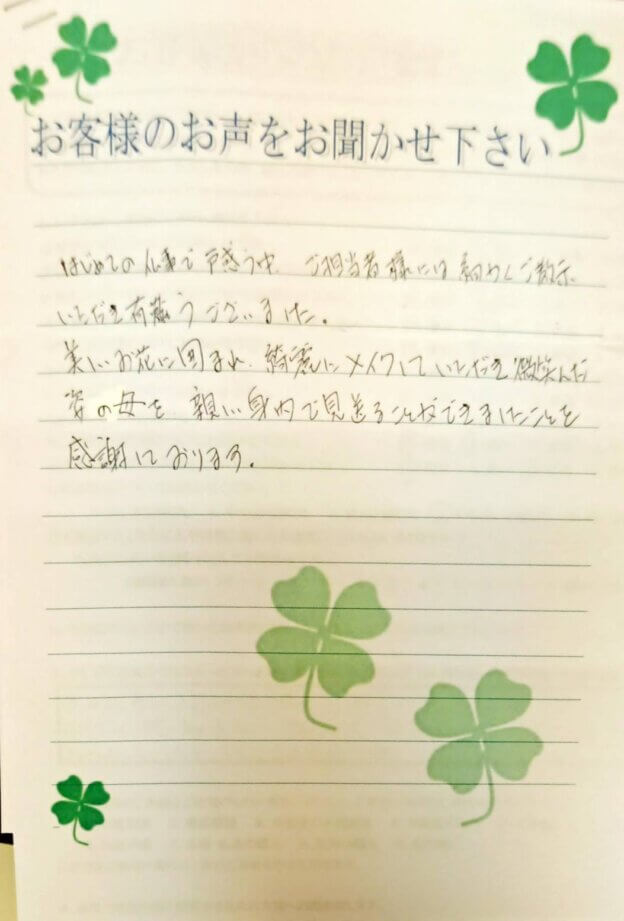 お客様のお声をお聞かせ下さい
はじめての仏事で戸惑う中 ご担当者様には細かくご教示
いただき有難うございました。
美しいお花に囲まれ、綺麗にメイクしていただき微笑んだ
姿の母を、親しい身内で見送ることができましたことを
感謝しております。